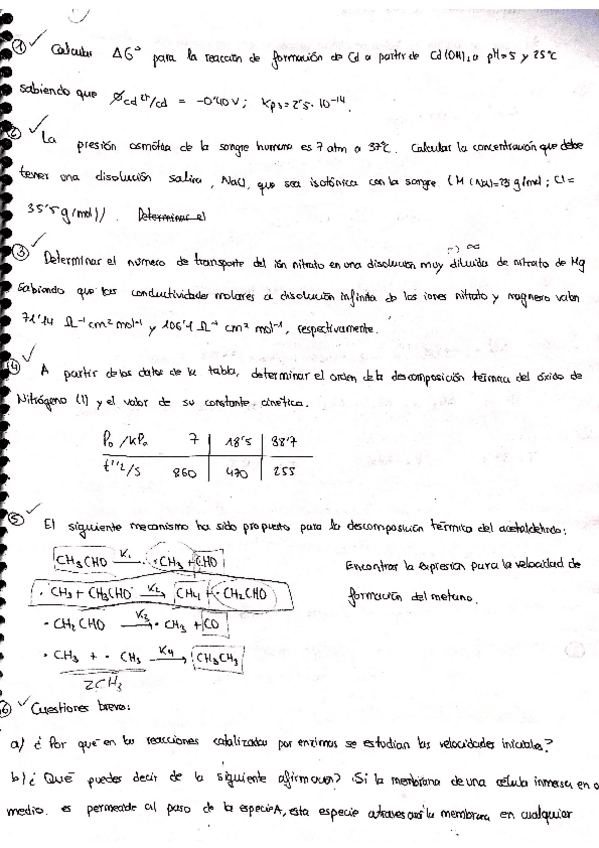 ① Calcular ΔG° para la reacción de formación de Cd a partir de Cd(OH)₂ a pH=5 y 25°C
sabiendo que Øcd²⁺/cd = -0'40V; Kps=2'5·10⁻¹⁴.
② La presión osmótica de la sangre humana es 7 atm a 37°C. Calcular la concentración que debe
tener una disolución salina, NaCl, que sea isotónica con la sangre (M (Na)=23 g/mol; Cl=
35'5 g/mol)). Determinar el
③ Determinar el número de transporte del ión nitrato en una disolución muy diluida de nitrato de Mg
sabiendo que las conductividades molares a disolución infinita de los iones nitrato y magnesio valen
71'14 Ω⁻¹ cm² mol⁻¹ y 106'1 Ω⁻¹ cm² mol⁻¹, respectivamente.
④ A partir de los datos de la tabla, determinar el orden de la descomposición térmica del óxido de
Nitrógeno (I) y el valor de su constante cinética.
P₀/kPa 7 18'5 38'7
t¹/²/s 860 470 255
⑤ El siguiente mecanismo ha sido propuesto para la descomposición térmica del acetaldehido:
CH₃CHO K₁→ ·CH₃ + CHO
Encontrar la expresión para la velocidad de
·CH₃ + CH₃CHO K₂→ CH₄ + ·CH₂CHO
formación del metano.
·CH₂CHO K₃→ ·CH₃ + CO
·CH₃ + ·CH₃ K₄→ CH₃CH₃
2CH₃
⑥ Cuestiones breves:
a) ¿Por qué en las reacciones catalizadas por enzimas se estudian las velocidades iniciales?
b) ¿Qué puedes decir de la siguiente afirmación? Si la membrana de una célula inmersa en
medio. es permeable al paso de la especie A, esta especie atravesará la membrana en cualquier